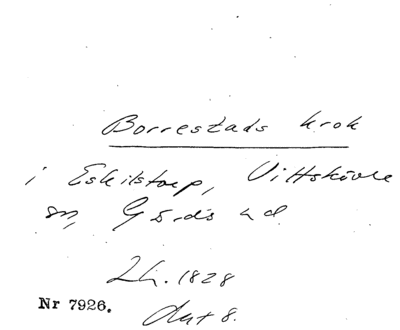 Borrestads krok
i Eskilstorp, Vittskövle
sn, Gärds hd
Lh. 1828
Nr 7926. Akt 8.